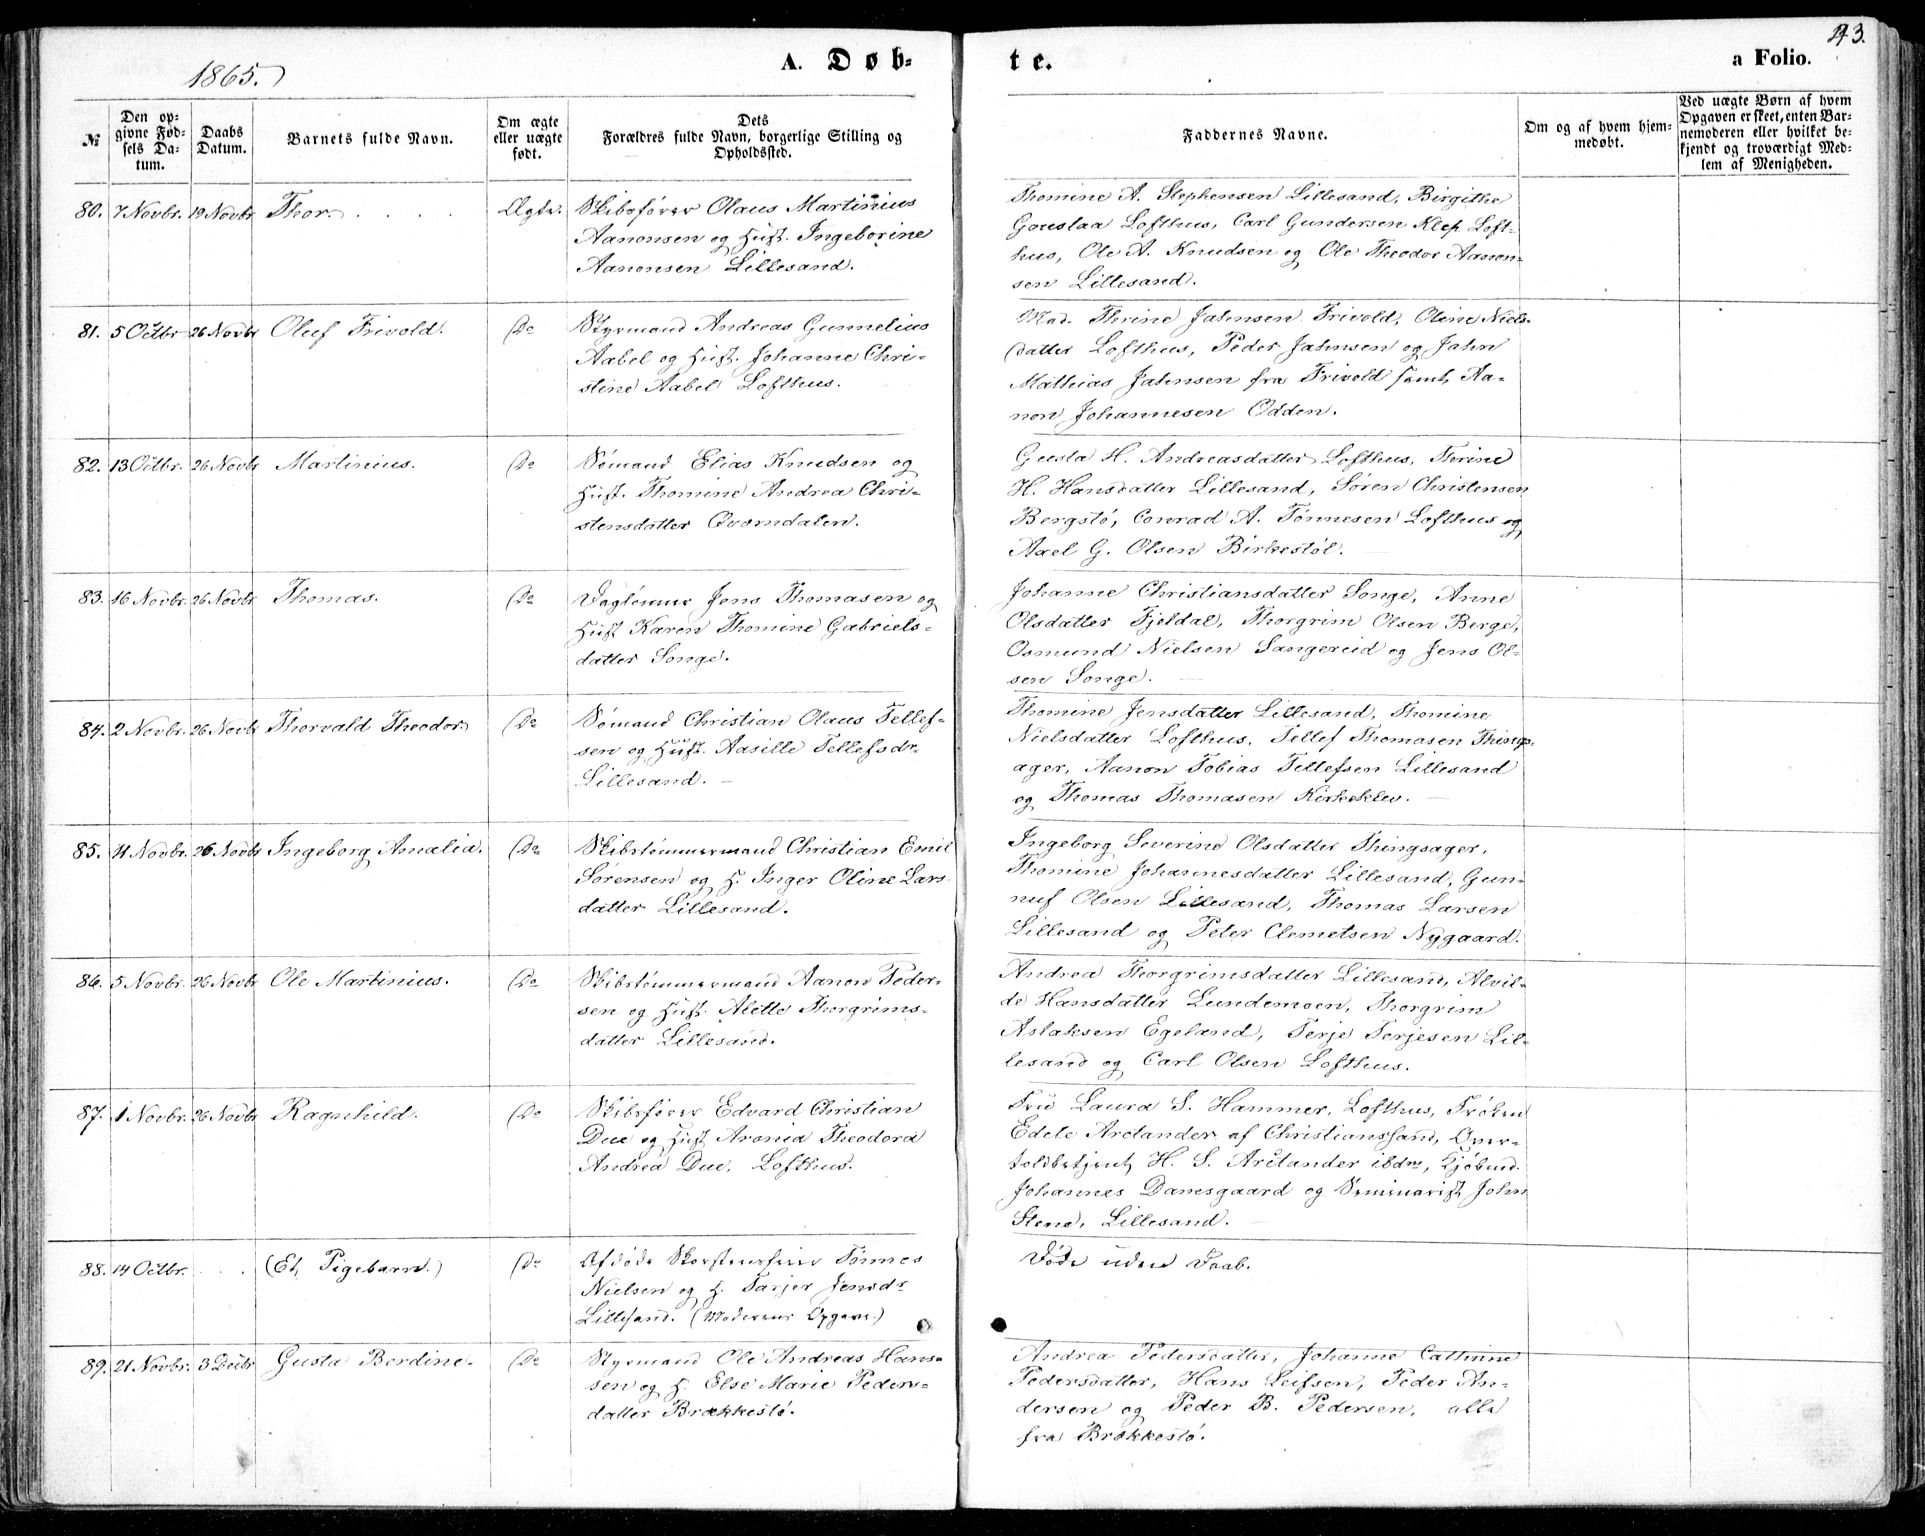 1865.
A. Døb-
te.
a Folio.
43.
№
Den op-
givne Fød-
sels Da-
tum.
Daabs
Datum.
Barnets fulde Navn.
Om ægte
eller uægte
født.
Dets
Forældres fulde Navn, borgerlige Stilling og
Opholdssted.
Faddernes Navne.
Om og af hvem hjem-
medøbt.
Ved uægte Børn af hvem
Opgaven er skeet, enten Bar-
nemoderen eller hvilket be-
kjendt og troværdigt Med-
lem af Menigheden.
80. 7 Novbr. 19 Novbr Thor. . . . . Ægte.
Skibsfører Olaus Martinius
Aanonsen og Hust. Ingeborine
Aanonsen Lillesand.
Thomine A. Stephensen Lillesand, Birgithe
Lofthus, Carl Gundersen Klep Loft-
hus, Ole A. Knudsen og Ole Theodor Aanon-
sen Lillesand.
81. 5 Octbr 26 Novbr Oluf Frivold. Do
Styrmand Andreas Gunnelius
Aabel og Hust. Johanne Chri-
stine Aabel Lofthus.
Mad. Thrine Jahnsen Frivold, Oline Niels-
datter Lofthus, Peder Jahnsen og Jahn
Mathias Jahnsen fra Frivold samt Aa-
non Johannesen Odden.
82. 13 Octbr. 26 Novbr Martinius. Do
Sømand Elias Knudsen og
Hust. Thomine Andrea Chri-
stensdatter Qvarndalen.
Gusta H. Andreasdatter Lofthus, Terine
H. Hansdatter Lillesand, Søren Christensen
Bergstø, Conrad A. Tønnesen Lofthus og
Axel G. Olsen Birkestøl.
83. 16 Novbr. 26 Novbr Thomas. Do
Daglønner Jens Thomasen og
Hust Karen Thomine Gabriels-
datter Songe.
Johanne Christiansdatter Songe, Anne
Olsdatter Fjeldal, Thorgrim Olsen Berge,
Osmund Nielsen Sangereid og Jens Ol-
sen Songe.
84. 2 Novbr. 26 Novbr Thorvald Theodor Do
Sømand Christian Olaus Tellef-
sen og Hust. Aasille Tellefsdr.
Lillesand.
Thomine Jensdatter Lillesand, Thomine
Nielsdatter Lofthus, Tellef Thomasen Things-
ager, Aanon Tobias Tellefsen Lillesand
og Thomas Thomasen Kirkeklev.
85. 11 Novbr. 26 Novbr Ingeborg Amalia. Do
Skibstømmermand Christian Emil
Sørensen og H. Inger Oline Lars
datter Lillesand.
Ingeborg Severine Olsdatter Thingsager,
Thomine Johannesdatter Lillesand, Gun-
nuf Olsen Lillesand, Thomas Larsen
Lillesand og Peter Clemetsen Nygaard.
86. 5 Novbr. 26 Novbr Ole Martinius. Do
Skibstømmermand Aanon Peder-
sen og Hust. Alette Thorgrims-
datter Lillesand.
Andrea Thorgrimsdatter Lillesand, Alvil-
de Hansdatter Lundemoen, Thorgrim
Aslaksen Egeland, Terje Terjesen Lil-
lesand og Carl Olsen Lofthus.
87. 1 Novbr. 26 Novbr Ragnhild. Do
Skibsfører Edvard Christian
Due og Hust Aronia Theodora
Andrea Due, Lofthus.
Fru Laura S. Hammer, Lofthus, Frøken
Edele Arctander af Christianssand, Over-
toldbetjent H. S. Arctander ibdm, Kjøbmd.
Johannes Danesgaard og Seminarist John
Stene, Lillesand.
88. 14 Octbr. . . (Et Pigebarn.) Do
Afdøde Skorsteensfeier Tønnes
Nielsen og H. Tarjer Jensdr
Lillesand. (Moderens Opgave.)
Døde uden Daab.
89. 21 Novbr. 3 Decbr Gusta Berdine. Do
Styrmand Ole Andreas Han-
sen og H. Else Marie Peders-
datter Brækkestø.
Andrea Pedersdatter, Johanne Cathrine
Pedersdatter, Hans Leifsen, Peder An-
dersen og Peder B. Pedersen, alle
fra Brækkestø.